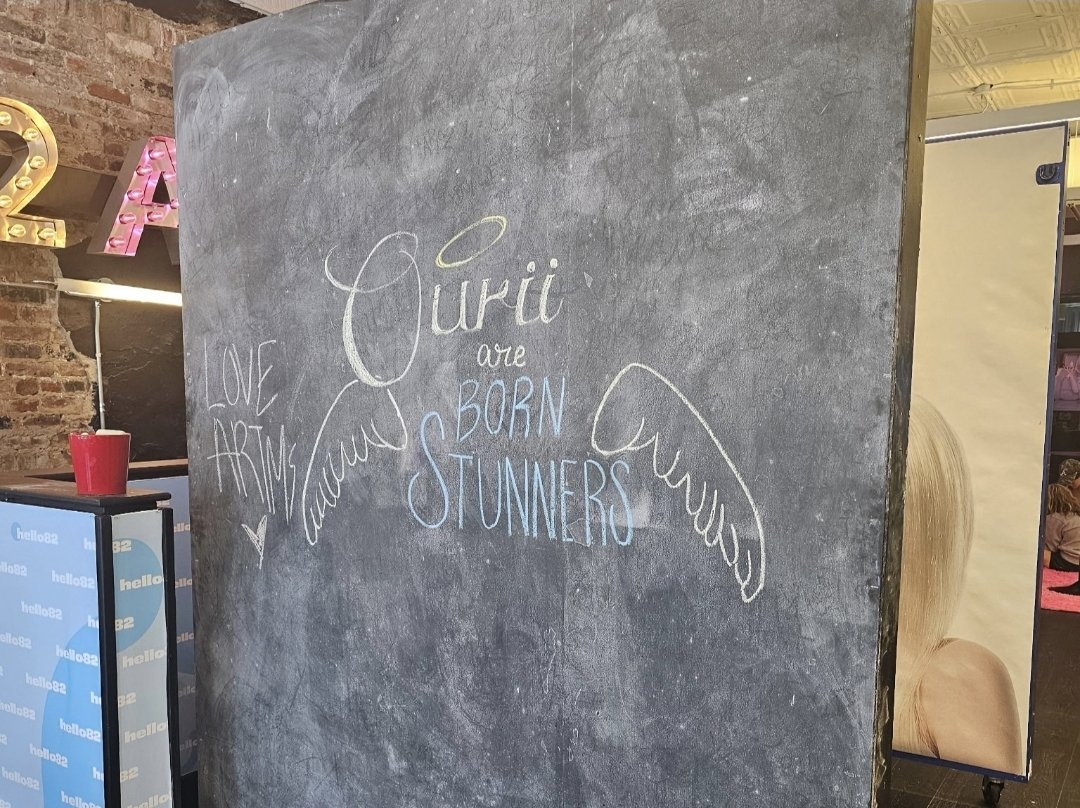 2A
Ourii
are
BORN
STUNNERS
LOVE
ARTMS
hello82
hello82
hello82
hello82
hello82
hello82
hello82
hello82
hello82
hello82
hello82
hello82